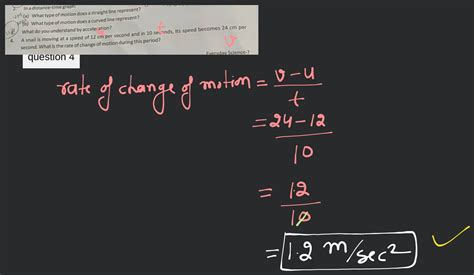 2. In a distance-time graph
(a) What type of motion does a straight line represent?
(b) What type of motion does a curved line represent?
What do you understand by acceleration?
4. A snail is moving at a speed of 12 cm per second and in 10 seconds, its speed becomes 24 cm per
second. What is the rate of change of motion during this period?
t
v
Everyday Science-7
question 4
rate of change of motion = v-u
t
= 24-12
10
= 12
10
= 1.2 m/sec²